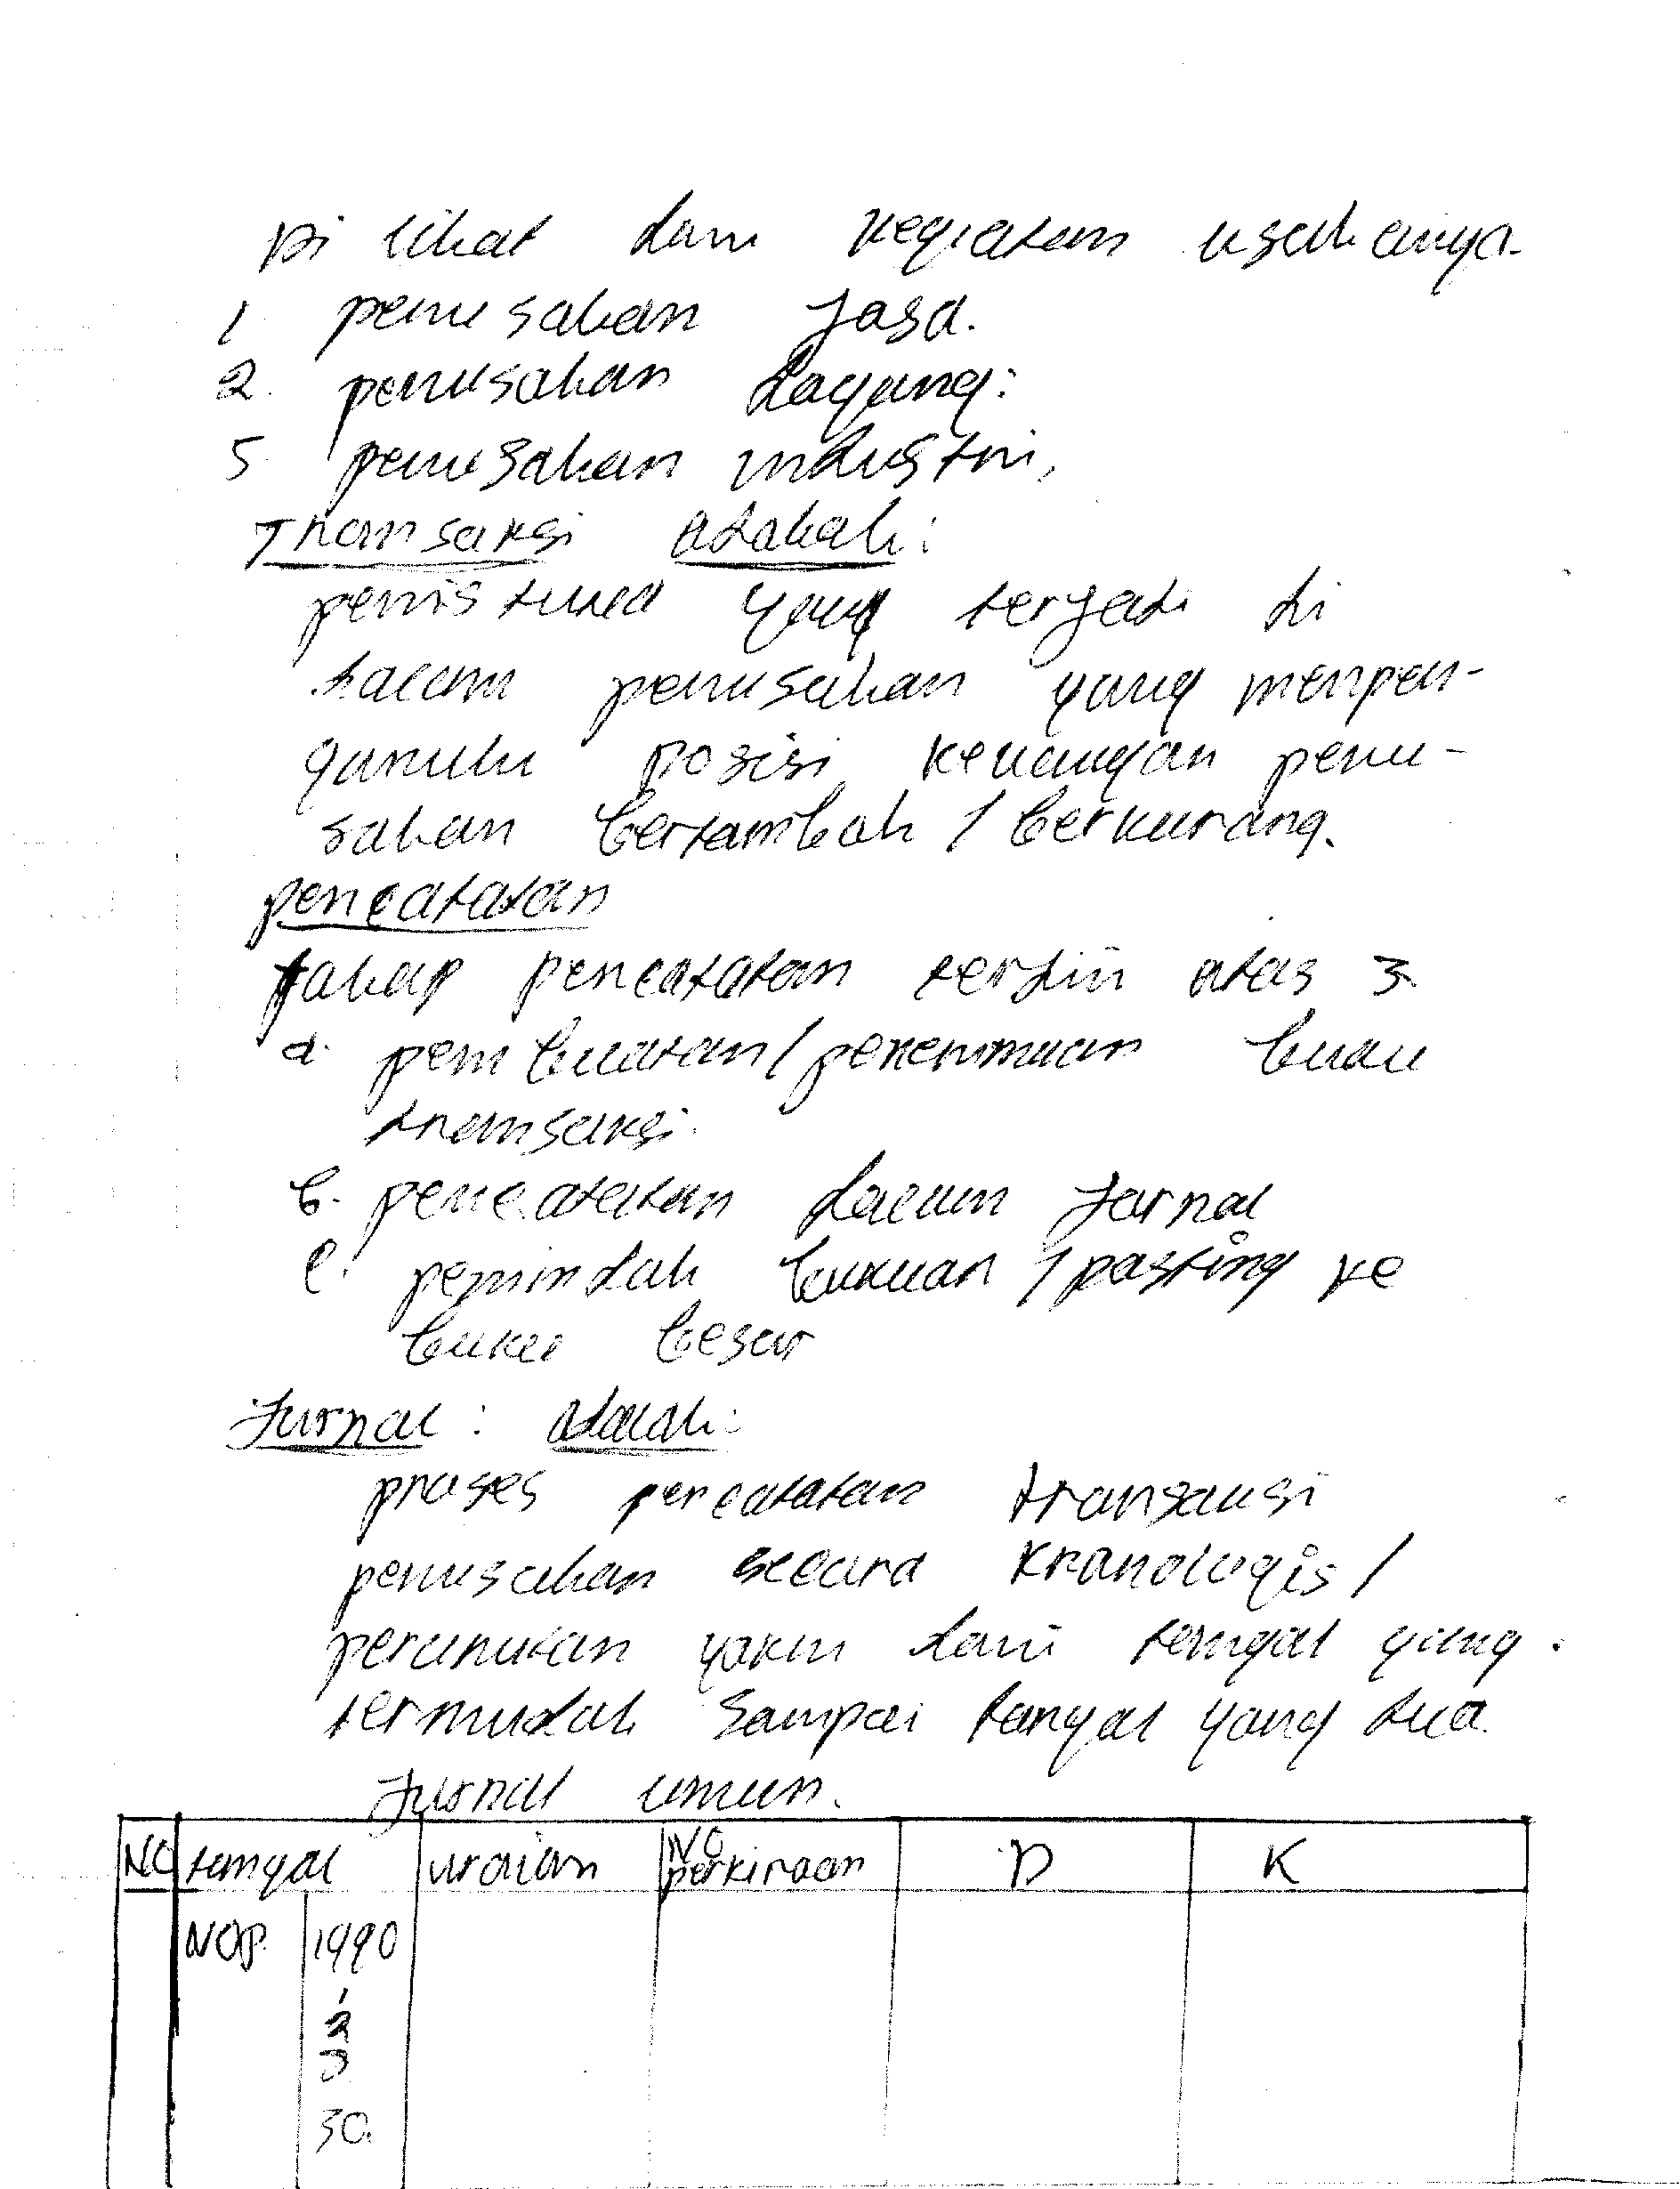 Di lihat dari kegiatan usahanya.
1. perusahan Jasa.
2. perusahan dagang.
3 perusahan industri,
Transaksi adalah:
peristiwa yang terjadi di
dalam perusahan yang menpen-
garuhi posisi keuangan peru-
sahan bertambah / berkurang.
pencatatan
tahap pencatatan terdiri atas 3
a. pembuatan/penerimaan bukti
transaksi.
b. pencatatan dalam Jurnal
c. pemindah bukuan / posting ke
buku besar
Jurnal : adalah:
proses pencatatan transaksi
perusahan secara kronologis /
perurutan yakni dari tanggal yang
termudah sampai tanggal yang tua.
Jurnal umum.
NO tanggal uraian NO perkiraan D K
NOP. 1990
1
2
3
30.